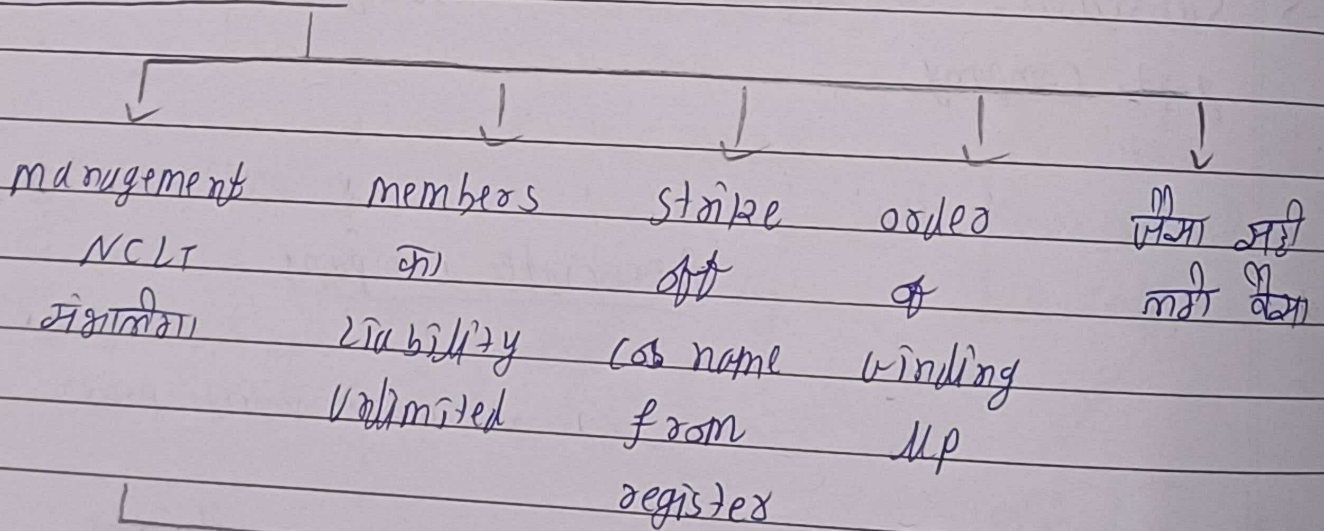 management
NCLT
संभालेगा
members
का
Liability
Unlimited
strike
off
Cos name
from
register
order
of
winding
up
जैसा सही
लगे वैसा